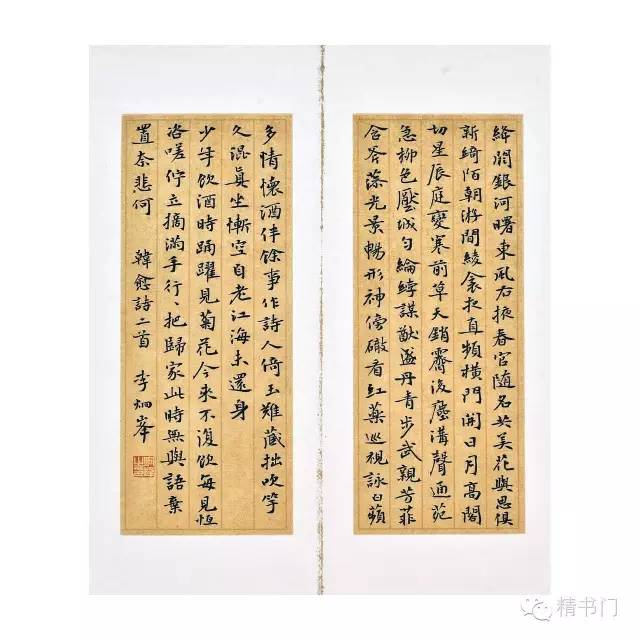 絳闕銀河曙東風右掖春官隨名共美花與思俱
新綺陌朝游間綾衾夜直頻橫門開日月高閣
切星辰庭變寒前草天銷霽後塵溝聲通苑
急柳色壓城勻綸綍謀猷盛丹青步武親芳菲
含斧藻光景暢形神傍看紅藥巡視詠白蘋
多情懷酒伴餘事作詩人倚玉難藏拙吹竽
久混真坐慚空自老江海未還身
少年飲酒時踴躍見菊花今來不復飲每見恆
咨嗟佇立摘滿手行、把歸家此時無與語棄
置奈悲何 韓愈詩二首 李炯峯
精书门